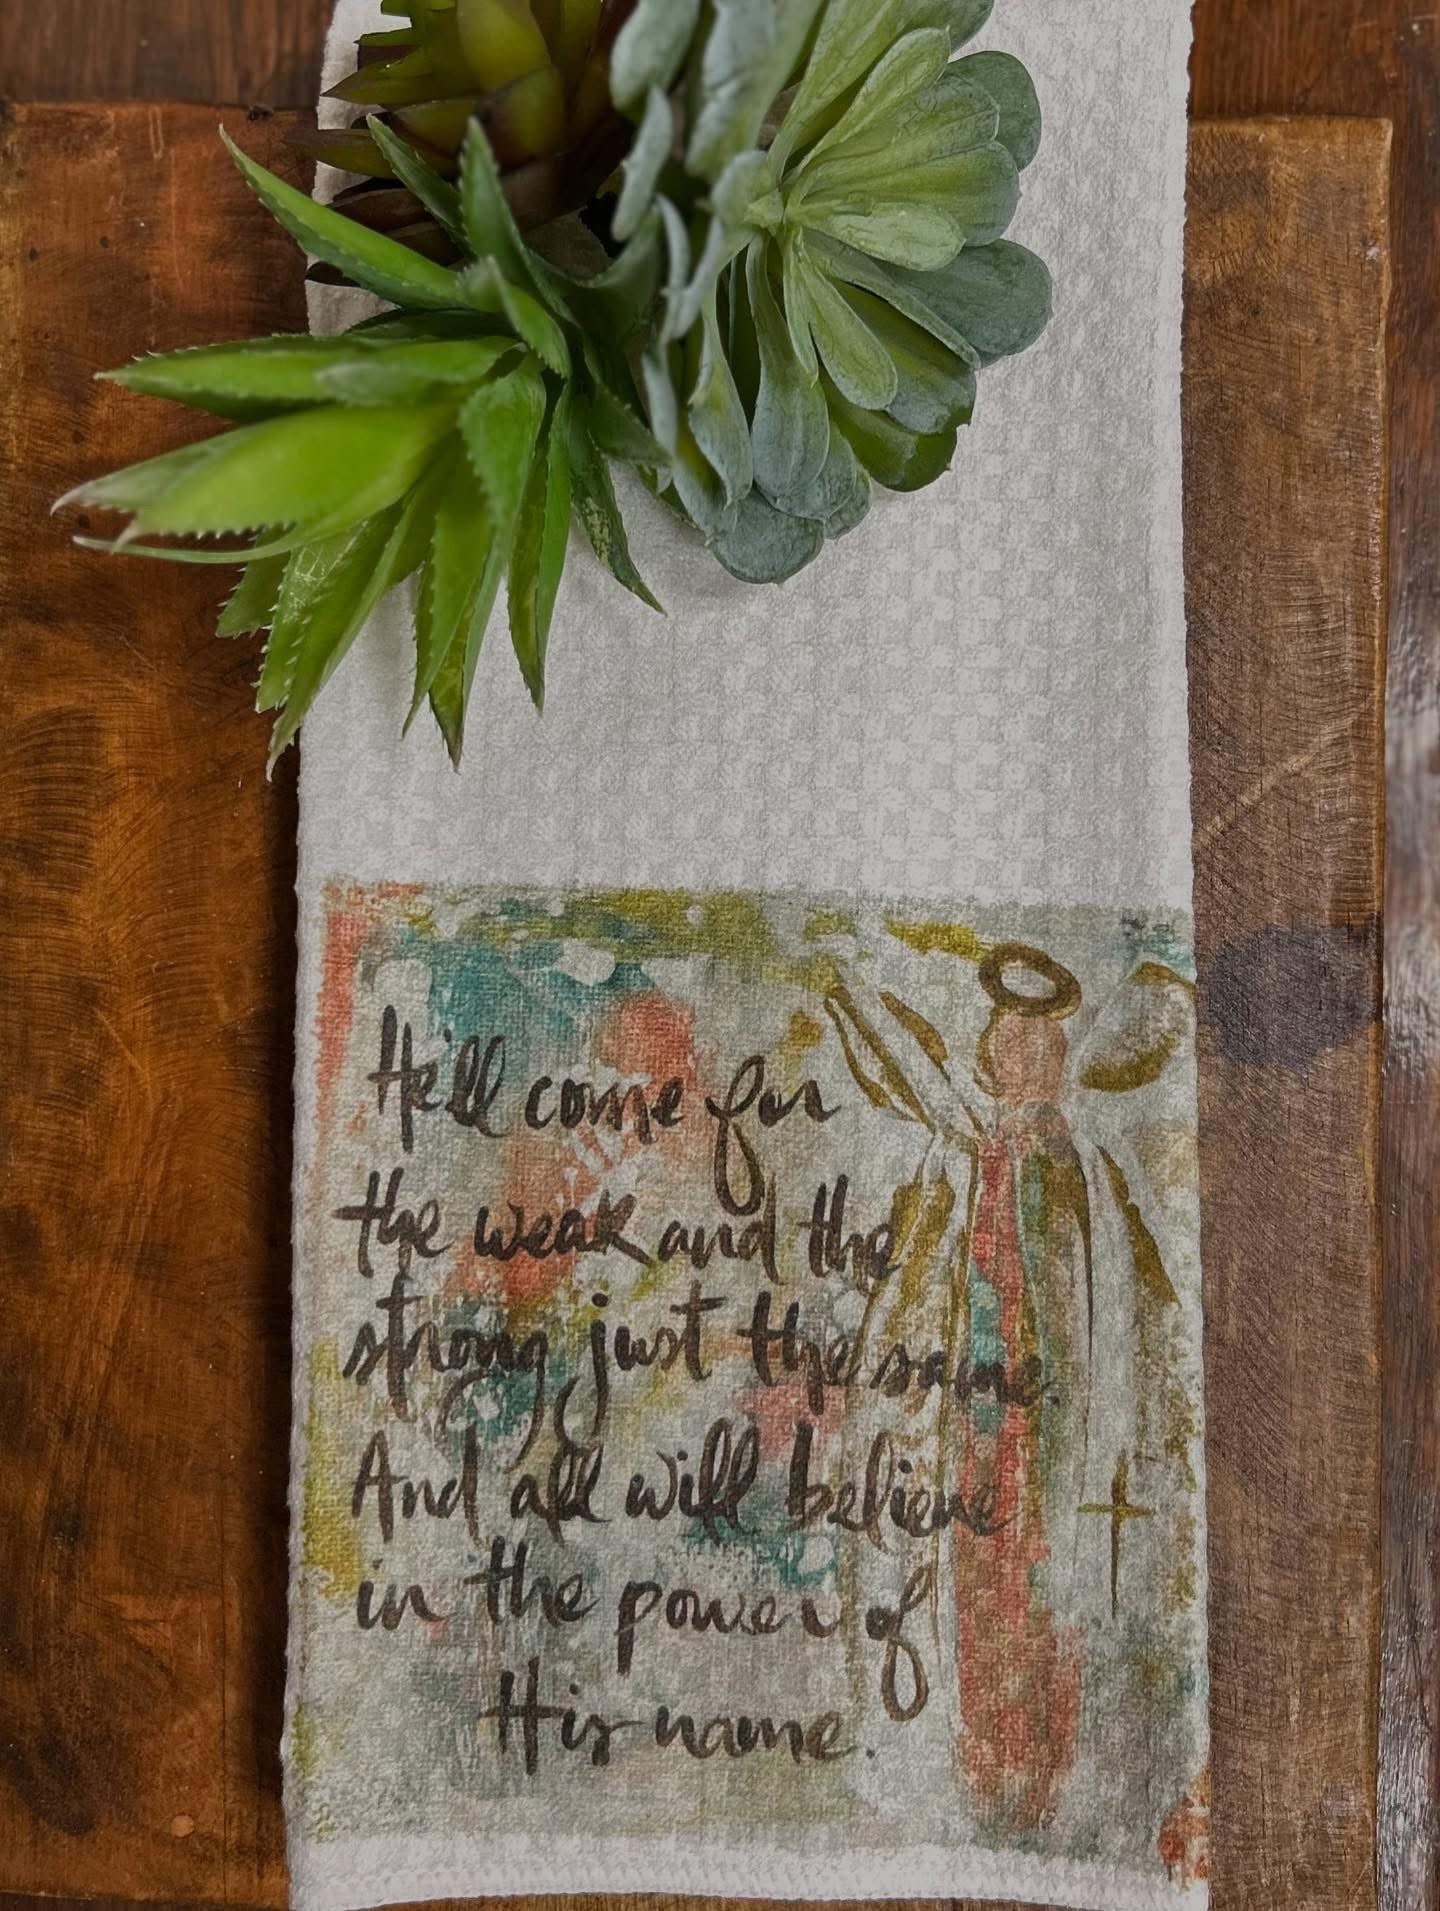 He'll come for
the weak and the
strong just the same.
And all will believe
in the power of
His name.